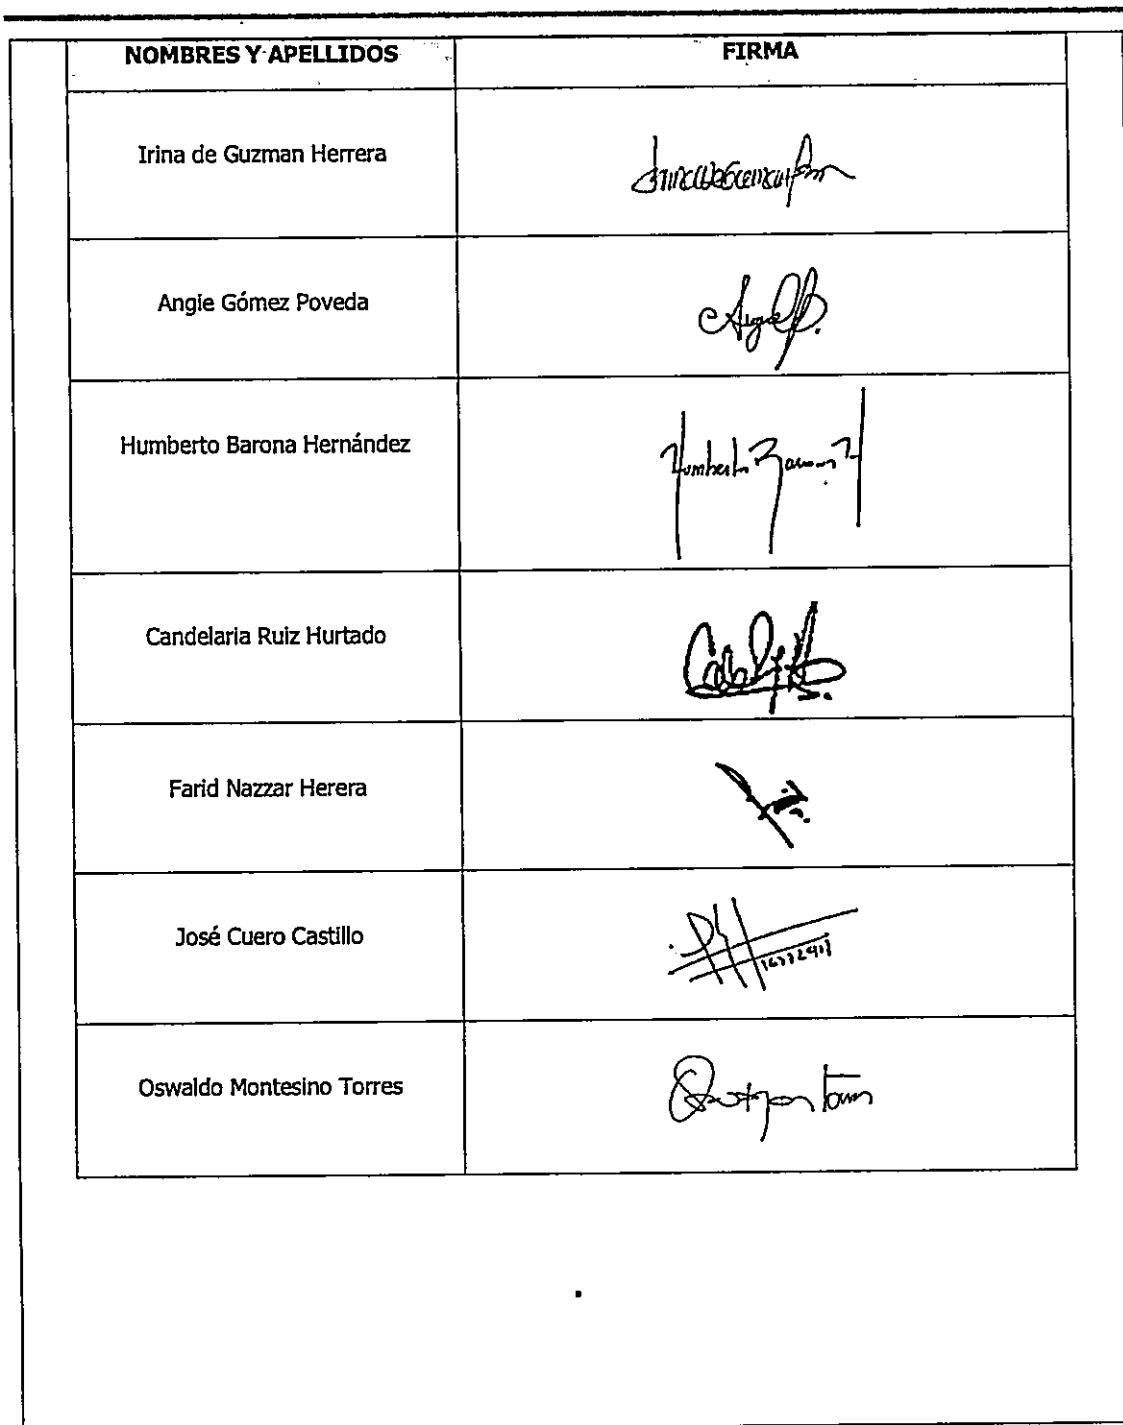 NOMBRES Y APELLIDOS FIRMA
Irina de Guzman Herrera
Angie Gómez Poveda
Humberto Barona Hernández
Humberto Barona H
Candelaria Ruiz Hurtado
Farid Nazzar Herera
José Cuero Castillo
Oswaldo Montesino Torres